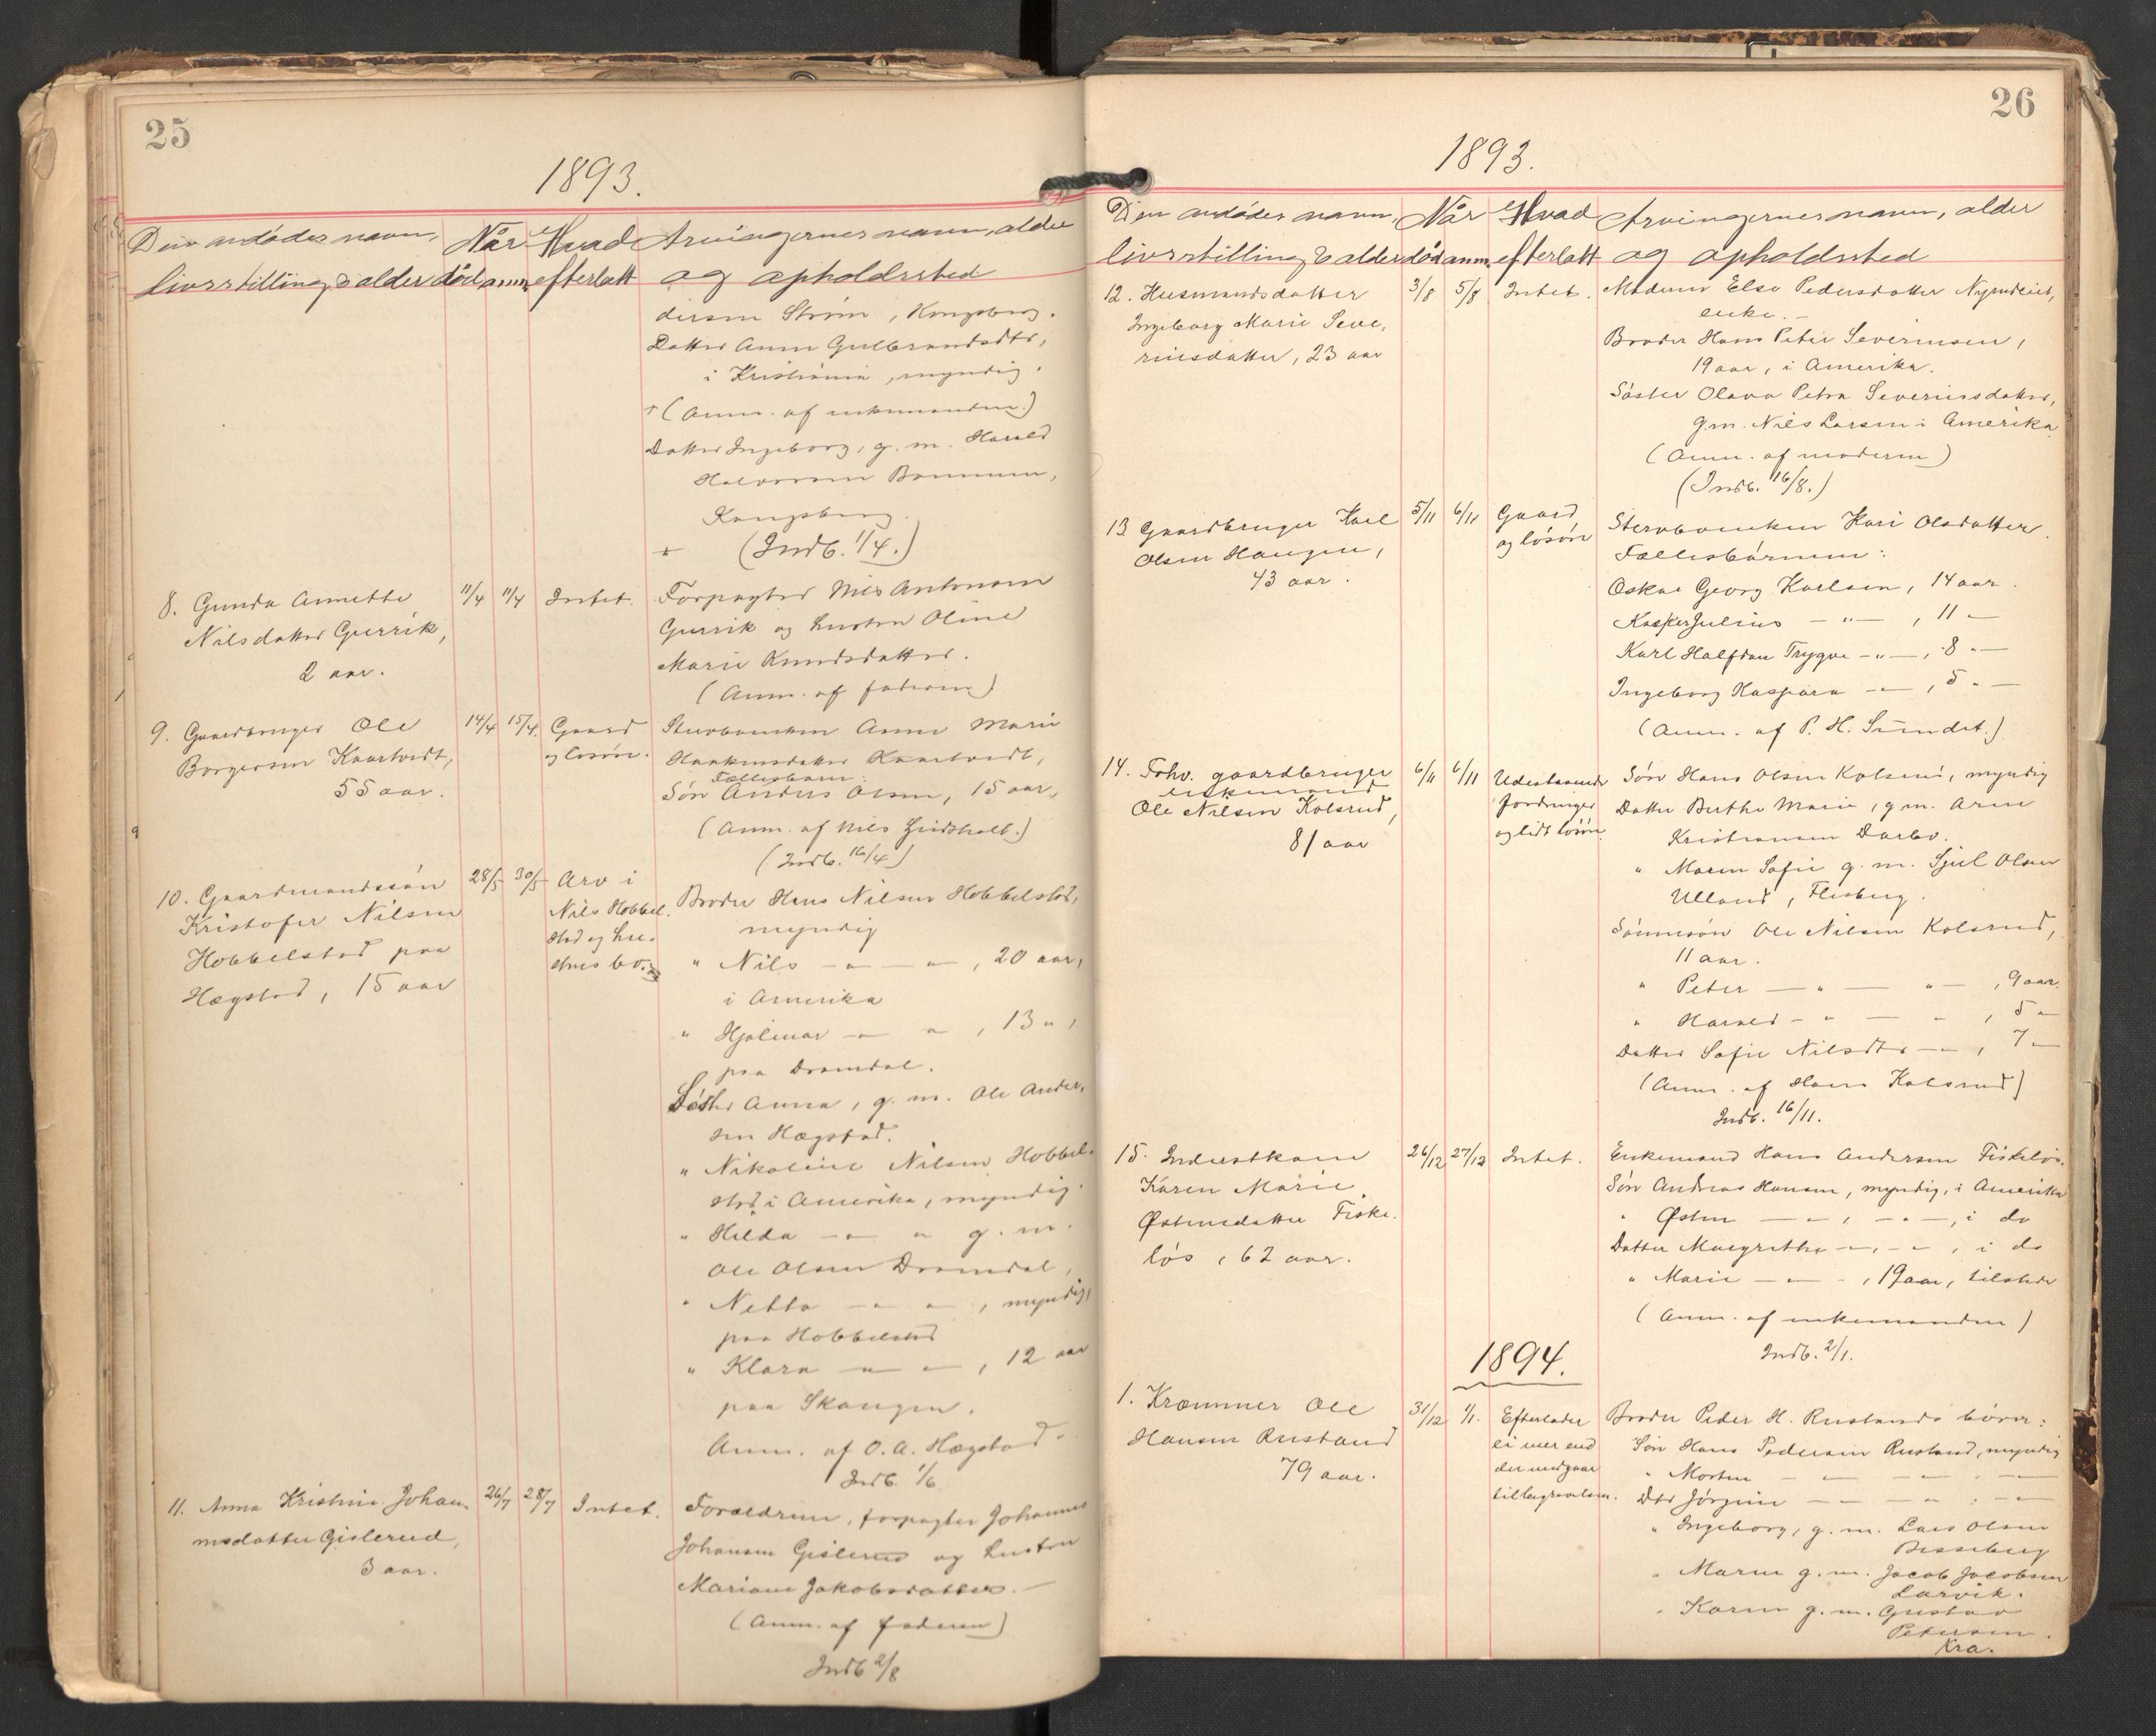 25
1893.
Den avdødes navn,
livsstilling & alder
Når
død
anm.
Hvad
efterlatt
Arvingernes navn, alder
og opholdssted
dersen Strøm, Kongsberg.
Datter Anne Gulbrandsdtr,
i Kristiania, myndig.
+ (Anm. af enkemanden.)
Datter Ingeborg, g. m. Harald
Halvorsen
Kongsberg.
+ (Indb. 1/4.)
8. Gunda Annette
Nilsdatter Gurrik,
2 aar.
11/4
11/4
Intet.
Forpagter Nils Antonsen
Gurrik og hustru Oline
Marie Knudsdatter.
(Anm. af faderen)
9. Gaardbruger Ole
Borgersen Kaartvedt,
55 aar.
14/4
15/4.
Gaard
og løsøre.
Sterboenken Anne Marie
Haakensdatter Kaartvedt,
Fællesbarn:
Søn Anders Olsen, 15 aar,
(Anm. af Nils
(Indb. 16/4)
10. Gaardmandssøn
Kristofer Nilsen
Hobbelstad paa
Hægstad, 15 aar
28/5
30/5
Arv i
Nils Hobbel-
stad og hu-
strus bo.
Broder Hans Nilsen Hobbelstad,
myndig
" Nils — " — " —, 20 aar,
i Amerika
" Hjalmar — " — " , 13 " ,
paa Dramdal.
Søster Anna, g. m. Ole Ander-
sen Hægstad.
" Nikoline Nilsen Hobbel-
stad i Amerika, myndig.
" Hilda — " — " g. m.
Ole Olsen Dramdal,
" Netta — " — " , myndig,
paa Hobbelstad
" Klara — " — " , 12 aar
paa Skaugen.
Anm. af O. A. Hægstad.
Indb. 1/6
11. Anna Kristine Johan-
nesdatter Gislerud,
3 aar.
26/7
28/7
Intet.
Forældrene, forpagter Johannes
Johansen Gislerud og hustru
Mariane Jakobsdatter. —
(Anm. af faderen)
Indb 2/8
26
1893.
Den avdødes navn,
livsstilling & alder
Når
død
anm.
Hvad
efterlatt
Arvingernes navn, alder
og opholdssted
12. Husmandsdatter
Ingeborg Marie Seve-
rinsdatter, 23 aar
3/8
5/8
Intet.
Moderen Else Pedersdatter Nymoeiet,
enke. —
Broder Hans Peter Severinsen,
19 aar, i Amerika.
Søster Olava Petra Severinsdatter,
g.m. Nils Larsen i Amerika
(Anm. af moderen)
(Indb. 16/8.)
13. Gaardbruger Karl
Olsen Haugen,
43 aar.
5/11
6/11
Gaard
og løsøre
Sterboenken Kari Olsdatter.
Fællesbørnene:
Oskar Georg Karlsen, 14 aar.
Kasper Julius — " — , 11 "
Karl Halfdan Trygve — " — , 8 " —
Ingeborg Kaspara — " — , 5 " —
(Anm. af P. H. Sundet.)
14. Fhv. gaardbruger
enkemand
Ole Nilsen Kolsrud,
81 aar
6/11
6/11
Udestaaende
fordringer
og lidt løsøre
Søn Hans Olsen Kolsrud, myndig
Datter Berthe Marie, g m. Arne
Kristiansen Darbo.
" Maren Sofie g. m. Sjul Olsen
Ulland, Flesberg.
Sønnesøn Ole Nilsen Kolsrud,
11 aar.
" Peter — " — " — , 9 aar.
" Harald — " — " , 5 "
Datter Sofie Nilsdtr — " , 7 "
(Anm. af Hans Kolsrud)
Indb. 16/11.
15. Inderstkone
Karen Marie
Østensdatter Fiske-
løs, 62 aar.
26/12
27/12
Intet.
Enkemand Hans Andersen Fiskeløs.
Søn Andreas Hansen, myndig, i Amerika
" Østen — " — , — " —, i do
Datter Margrethe — " —, — " , i do
" Marie — " — , 19 aar, tilstede
(Anm. af enkemanden)
Indb. 2/1.
1894.
1. Kræmmer Ole
Hansen Rustand
79 aar.
31/12
1/1.
Efterlader
ei mer end
der medgaar
til begravelsen.
Broder Peder H. Rustands børn:
Søn Hans Pedersen Rustand, myndig
" Morten — " — " — " —
Dtr Jørgine — " — " — " —
" Ingeborg, g. m. Lars Olsen
Besseberg
" Maren g. m. Jacob Jacobsen
Larvik.
" Karen g. m. Gustav
Petersen.
Kra.